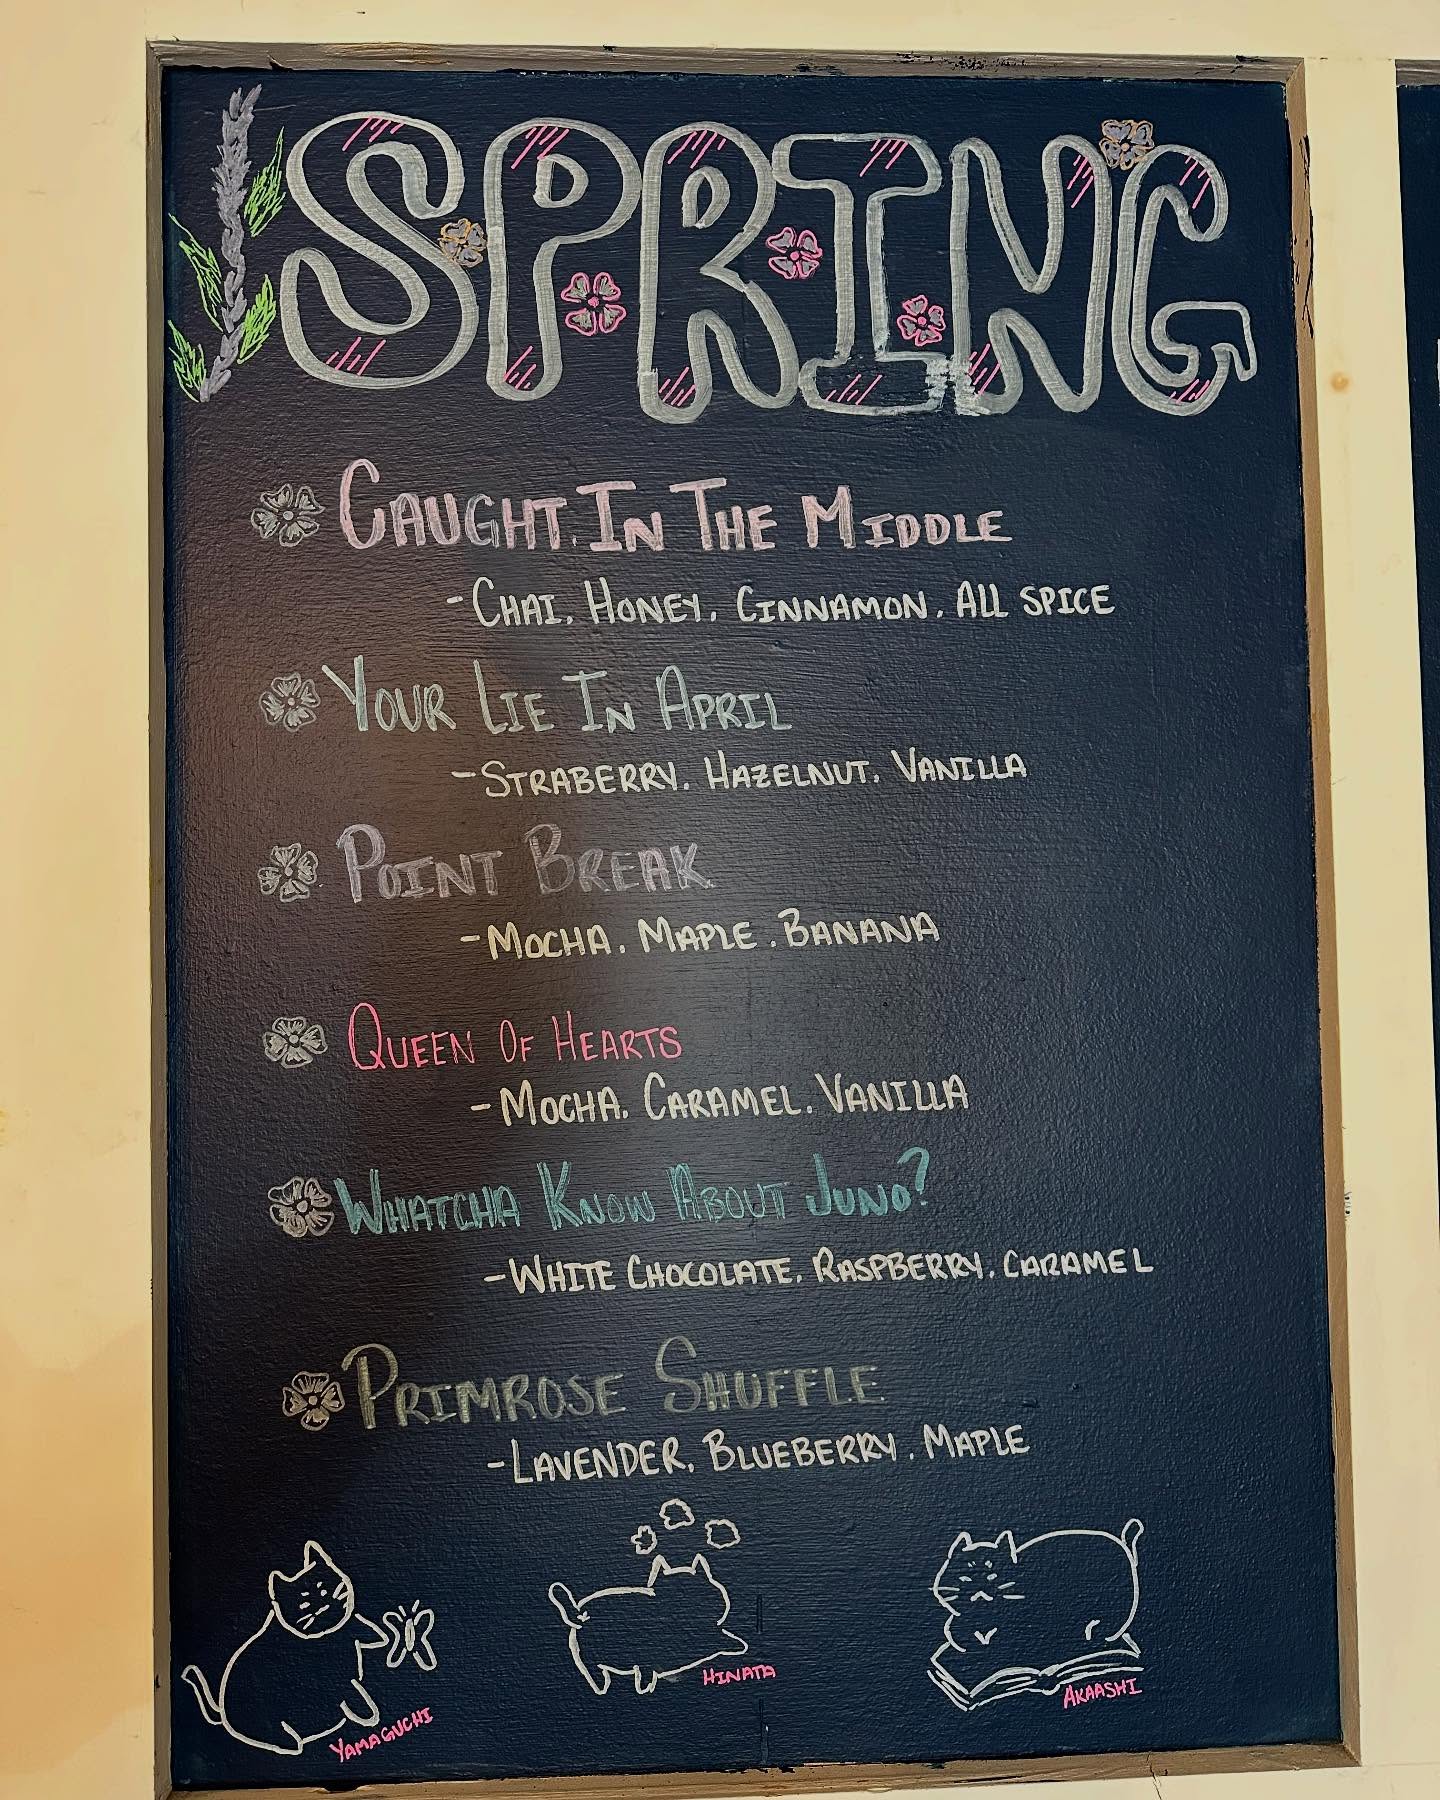 SPRING
CAUGHT IN THE MIDDLE
-CHAI, HONEY, CINNAMON, ALL SPICE
YOUR LIE IN APRIL
-STRABERRY, HAZELNUT, VANILLA
POINT BREAK
-MOCHA, MAPLE, BANANA
QUEEN OF HEARTS
-MOCHA, CARAMEL, VANILLA
WHATCHA KNOW ABOUT JUNO?
-WHITE CHOCOLATE, RASPBERRY, CARAMEL
PRIMROSE SHUFFLE
-LAVENDER, BLUEBERRY, MAPLE
YAMAGUCHI
HINATA
AKAASHI